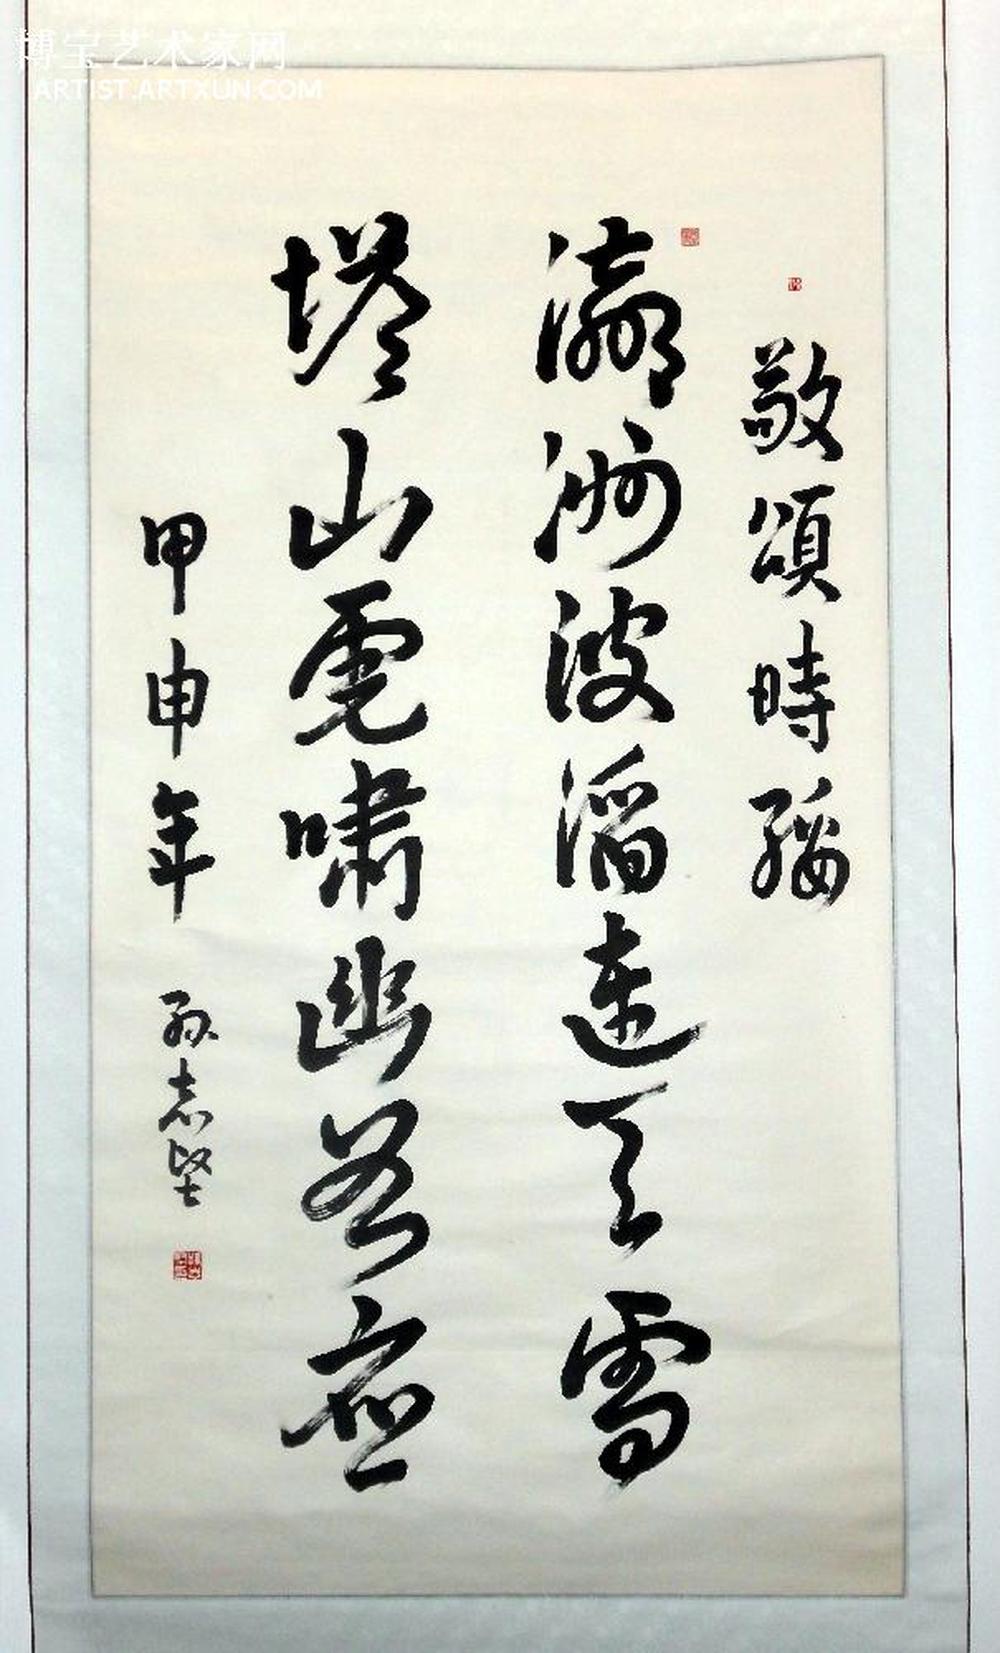 博宝艺术家网
ARTIST.ARTXUN.COM
敬頌時綏
瀛洲波滔連天雪
塔山虎嘯幽谷應
甲申年 孫志堅